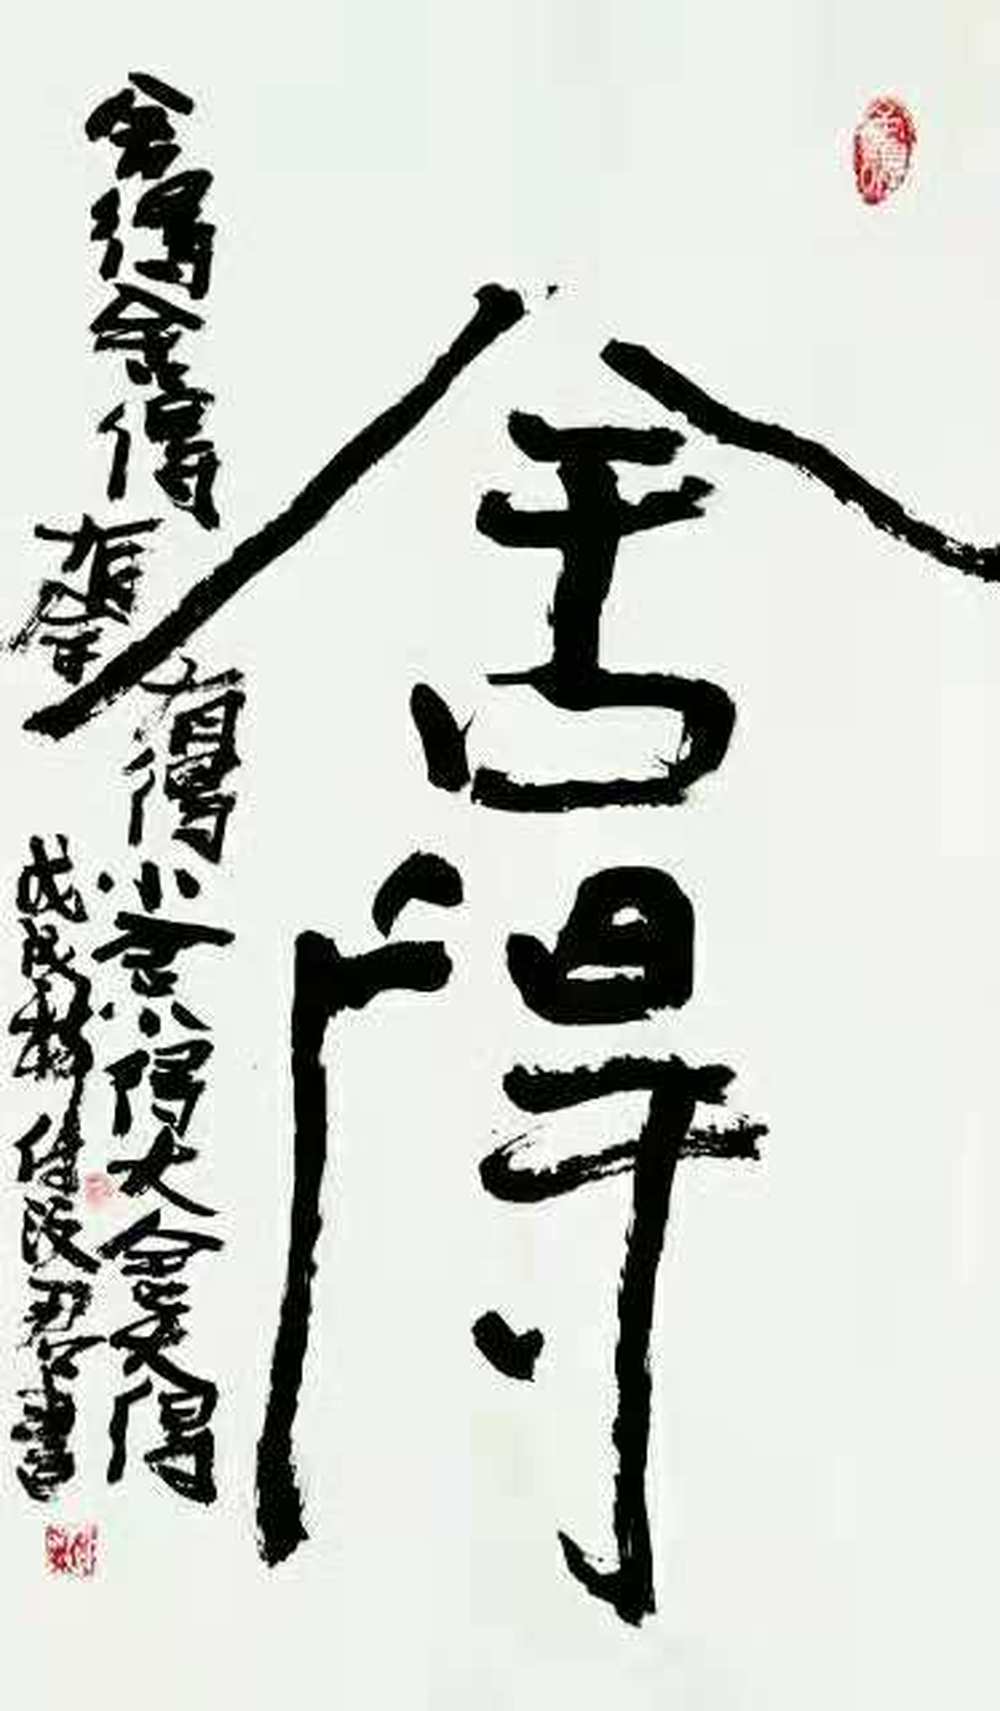 舍得
舍得舍得
有舍
有得小舍小得大舍大得
戊戌 書